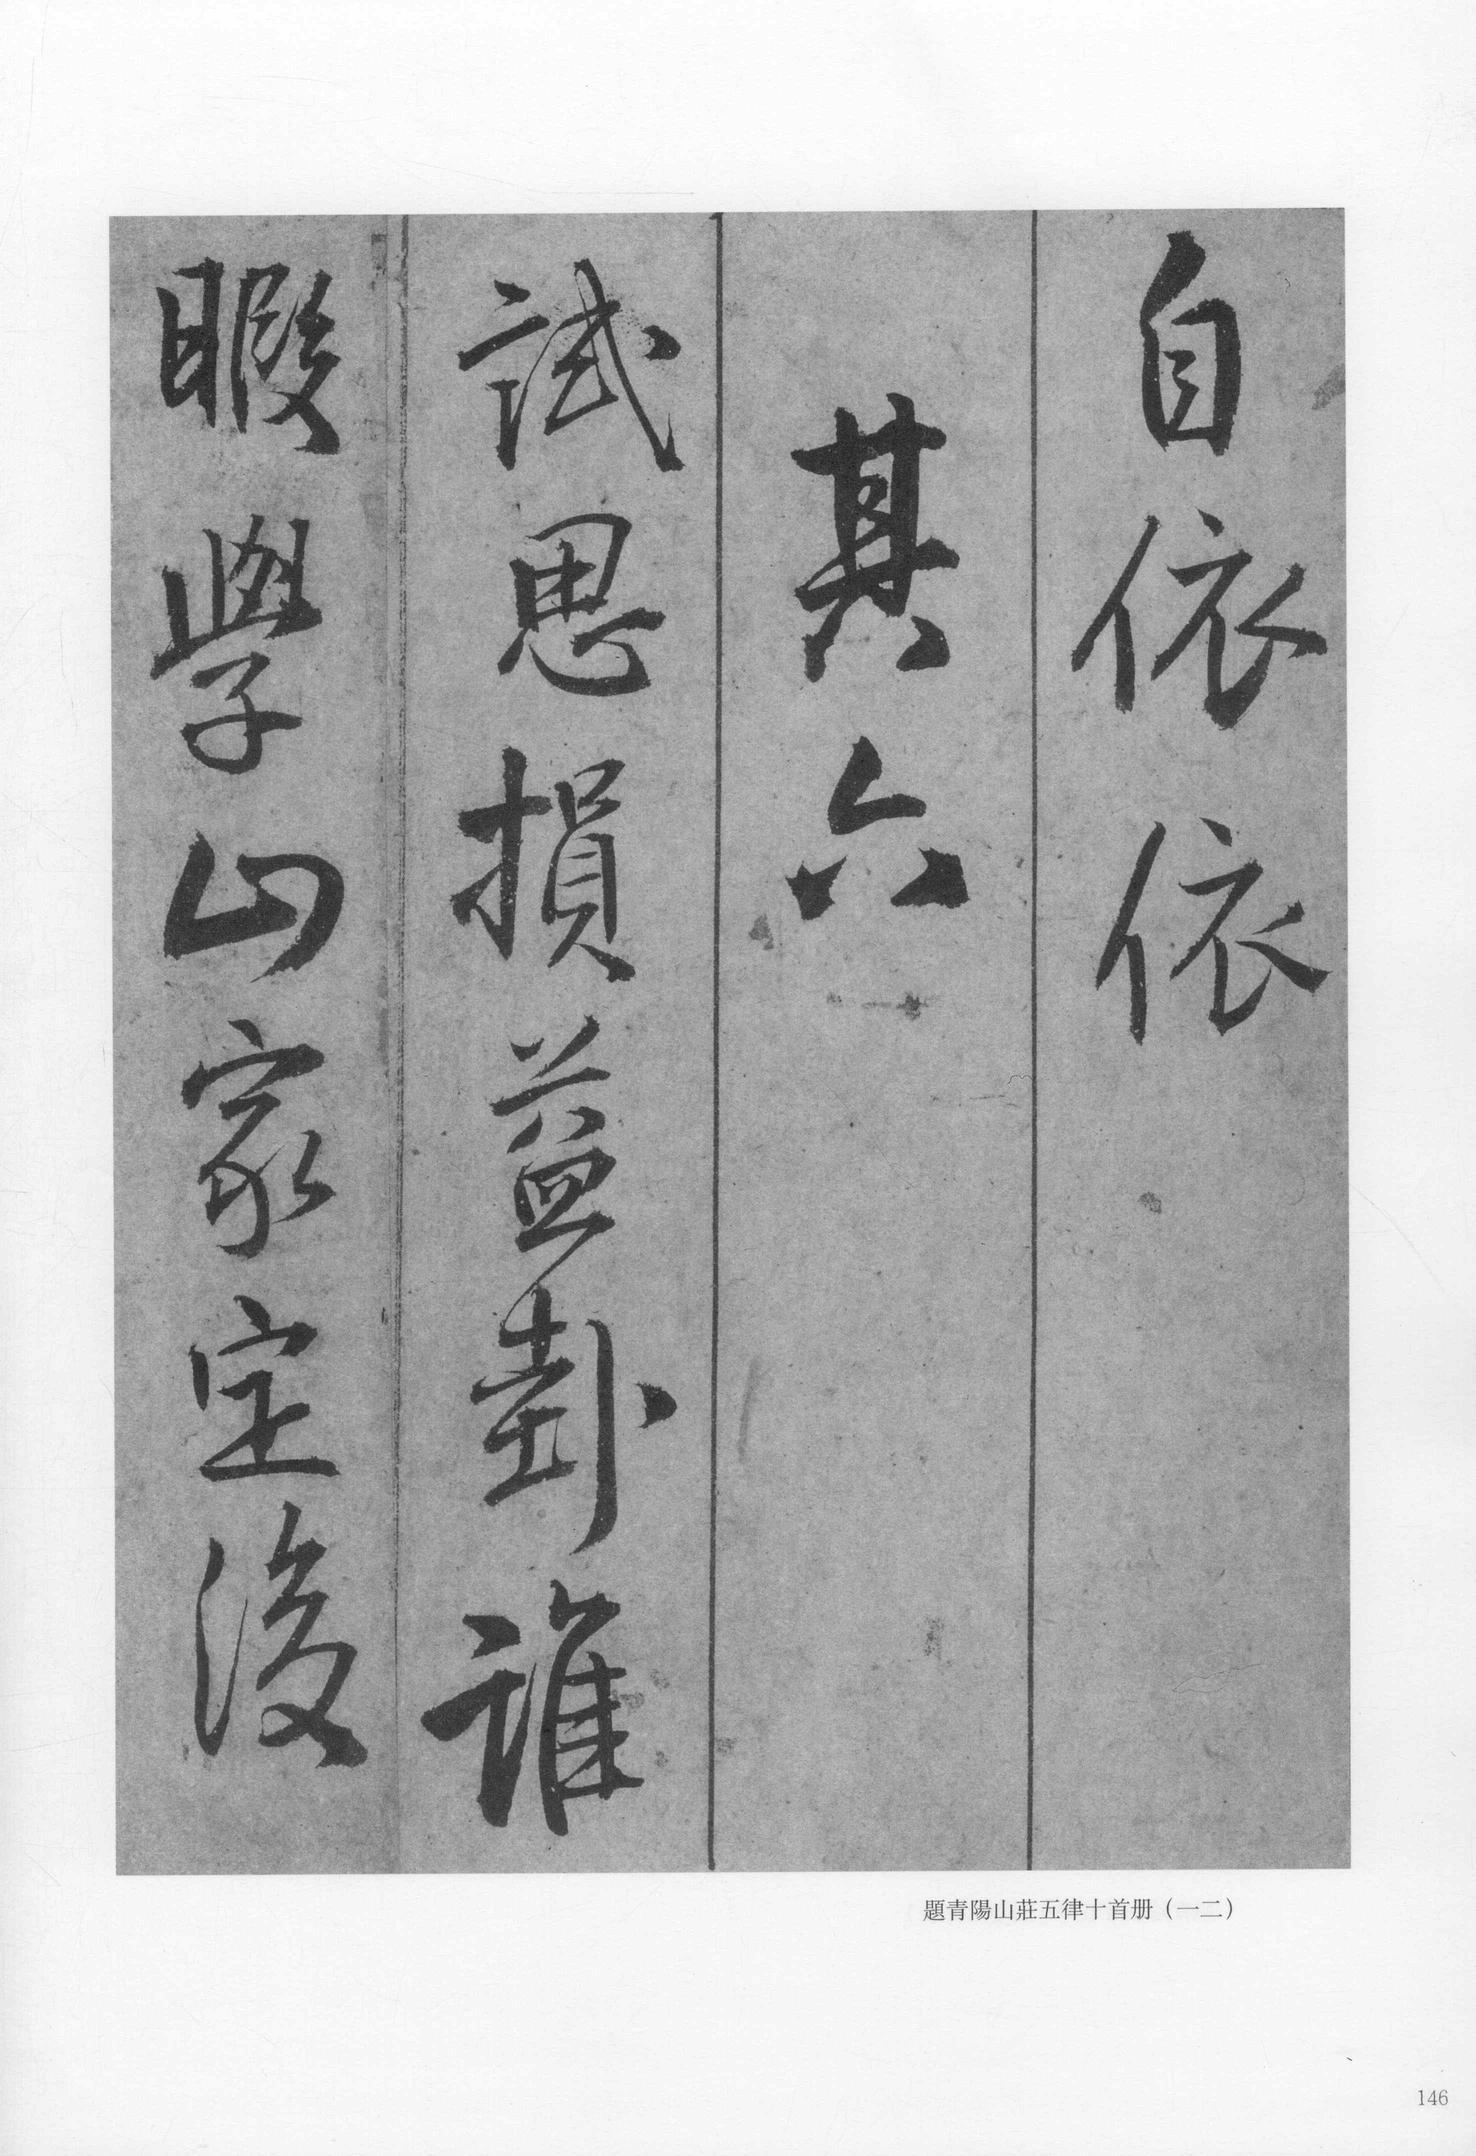 自依依
其六
試思損益卦誰
暇學山家定後
題青陽山莊五律十首册（一二）
146